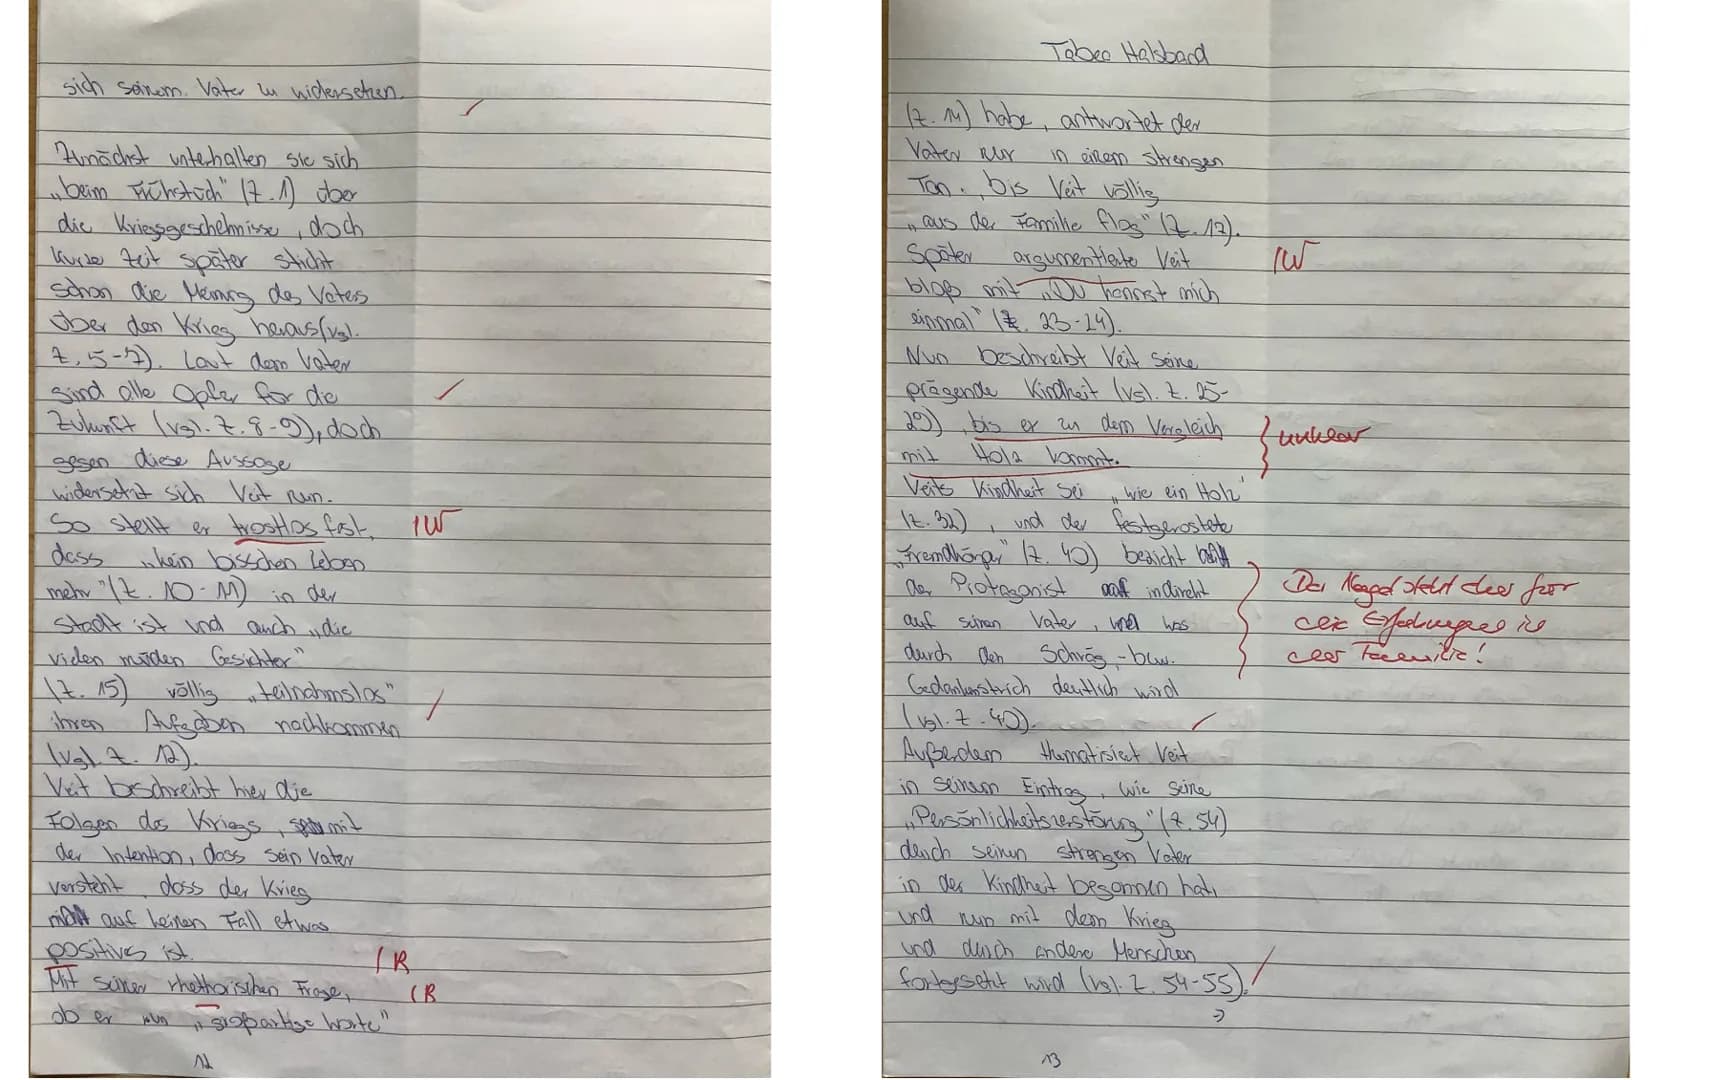 sich seinem Vater zu widersetzen.
Zunächst unterhalten sie sich
„beim Frühstück" (Z. 1) über
die Kriegsgeschehnisse, doch
kurze Zeit später sticht
schon die Meinung des Vaters
über den Krieg heraus (vgl.
Z. 5-7). Laut dem Vater
sind alle Opfer für die
Zukunft (vgl. Z. 8-9), doch
gegen diese Aussage
widersetzt sich Veit nun.
So stellt er trostlos fest, IW
dass „kein bisschen Leben
mehr" (Z. 10-11) in der
Stadt ist und auch „die
vielen müden Gesichter"
(Z. 15) völlig „teilnahmslos"
ihren Aufgaben nachkommen
(vgl. Z. 12).
Veit beschreibt hier die
Folgen des Kriegs, mit
der Intention, dass sein Vater
versteht, dass der Krieg
auf keinen Fall etwas
positives ist. IR
Mit seiner rhethorischen Frage, IR
ob er nun „großartige Worte"
12
Tabea Halsband
(Z. 14) habe, antwortet der
Vater nur in einem strengen
Ton, bis Veit völlig
„aus der Familie flog" (Z. 17).
Später argumentierte Veit IW
bloß mit „Du kennst mich
einmal" (Z. 23-24).
Nun beschreibt Veit seine
prägende Kindheit (vgl. Z. 25-
29), bis er zu dem Vergleich unklar
mit Holz kommt.
Veits Kindheit sei „wie ein Holz"
(Z. 32), und der festgerostete
„Fremdkörper" (Z. 40) bezieht
der Protagonist indirekt Der Nagel steht hier für
auf seinen Vater, was die Erfahrungen in
durch den Schräg,- bzw. der Familie!
Gedankenstrich deutlich wird
(vgl. Z. 40).
Außerdem thematisiert Veit
in seinem Eintrag, wie seine
„Persönlichkeitszerstörung" (Z. 54)
durch seinen strengen Vater
in der Kindheit begonnen hat,
und nun mit dem Krieg
und durch andere Menschen
fortgesetzt wird (vgl. Z. 54-55).
13